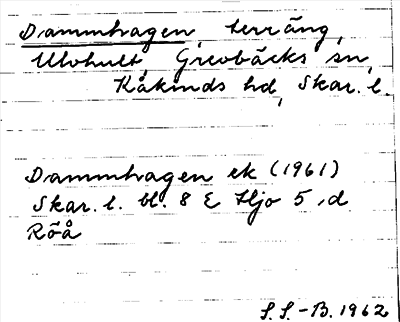 Dammhagen, terräng,
Ulvhult Grevbäcks sn,
Kåkinds hd, Skar. l.
Dammhagen ek (1961)
Skar. l. bl. 8 E Hjo 5 d
Röå
S. S.-B. 1962